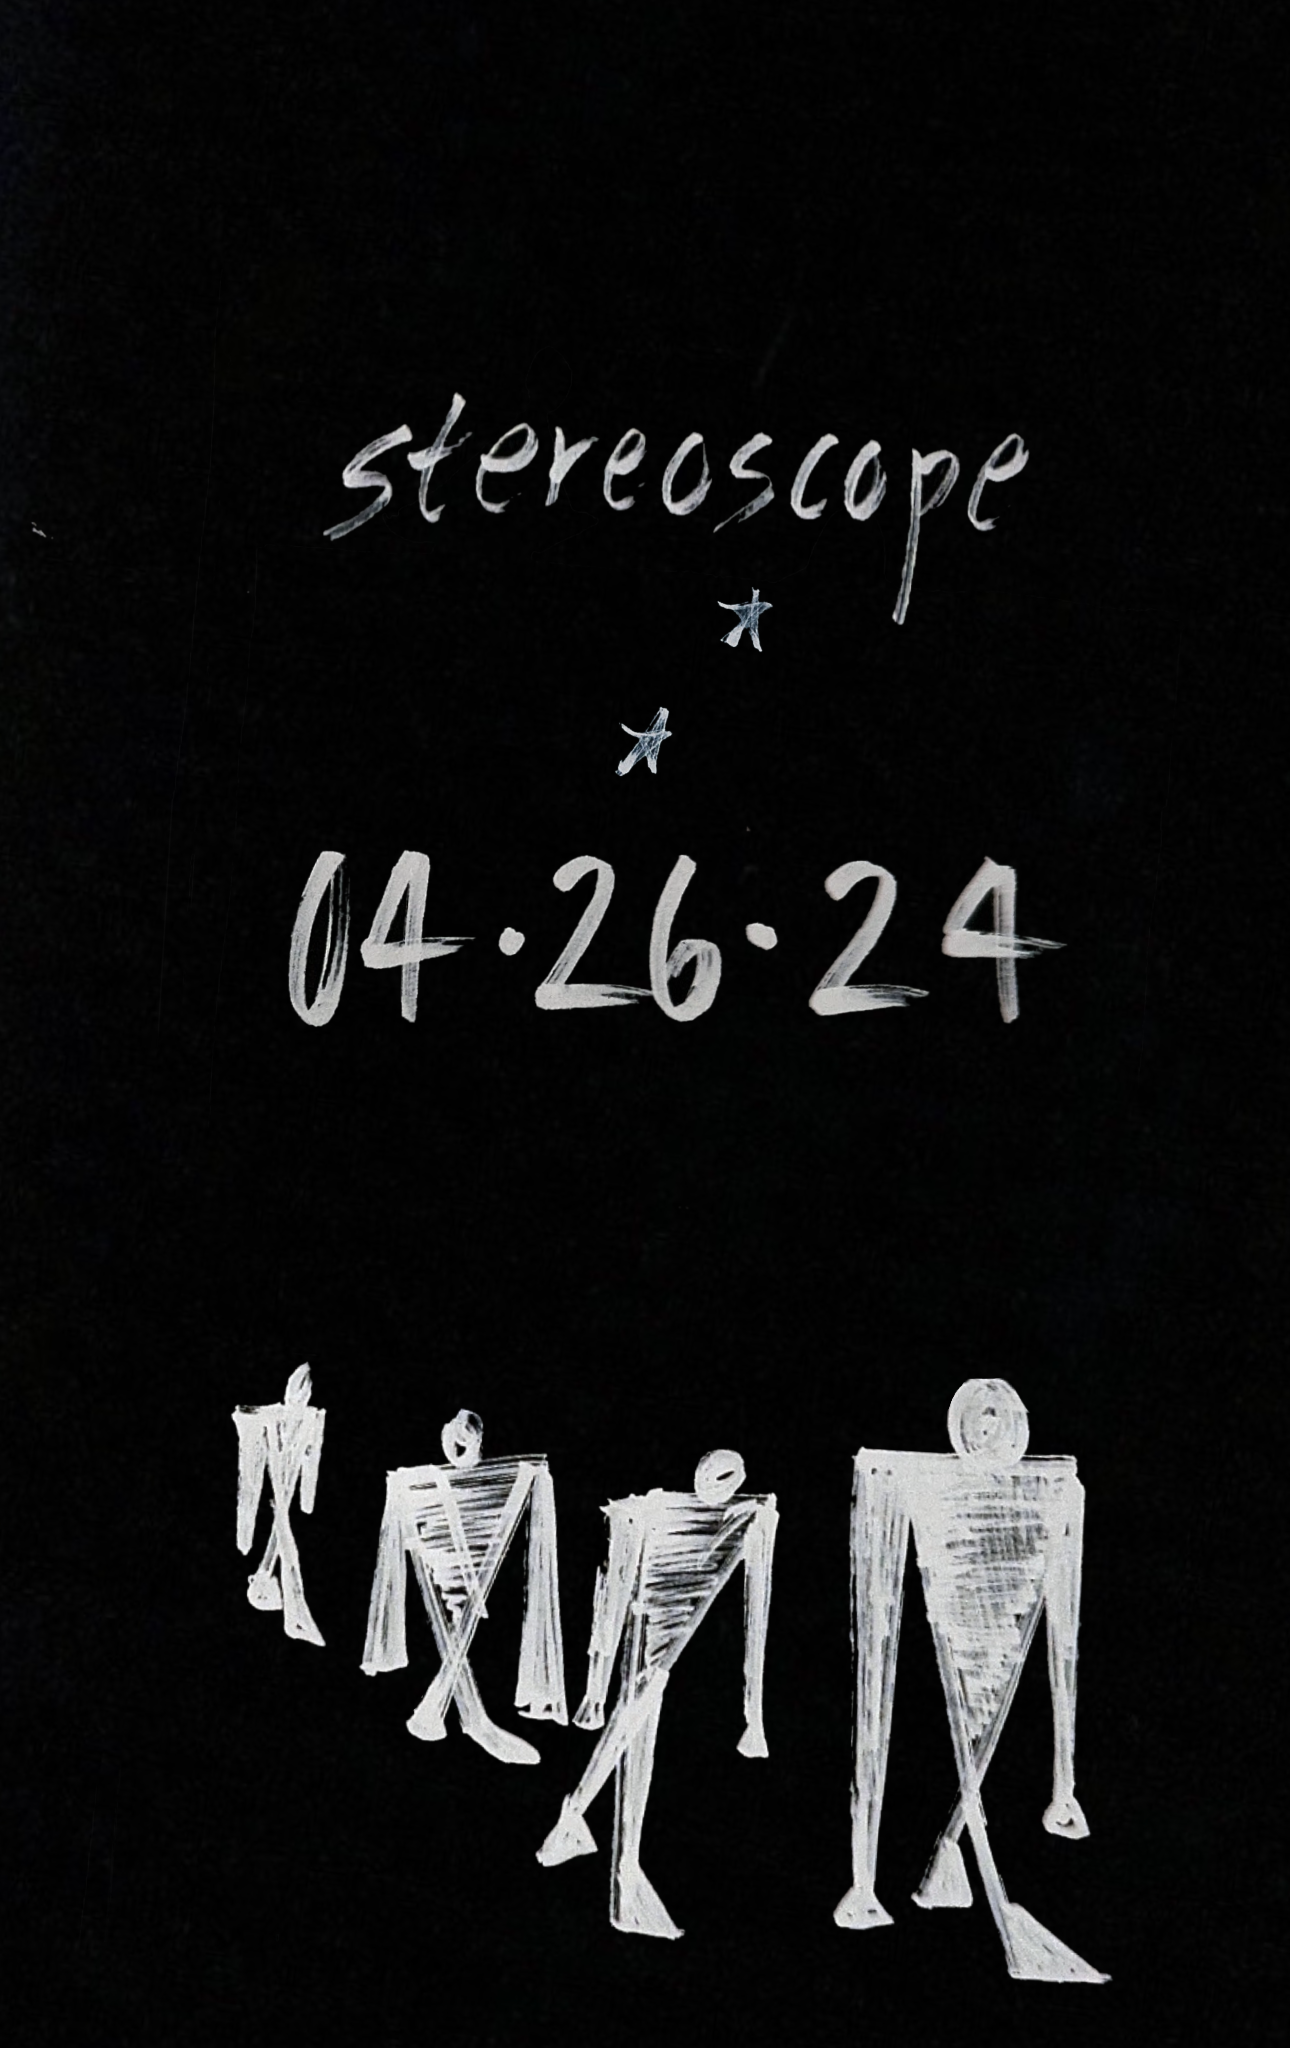 stereoscope
04.26.24